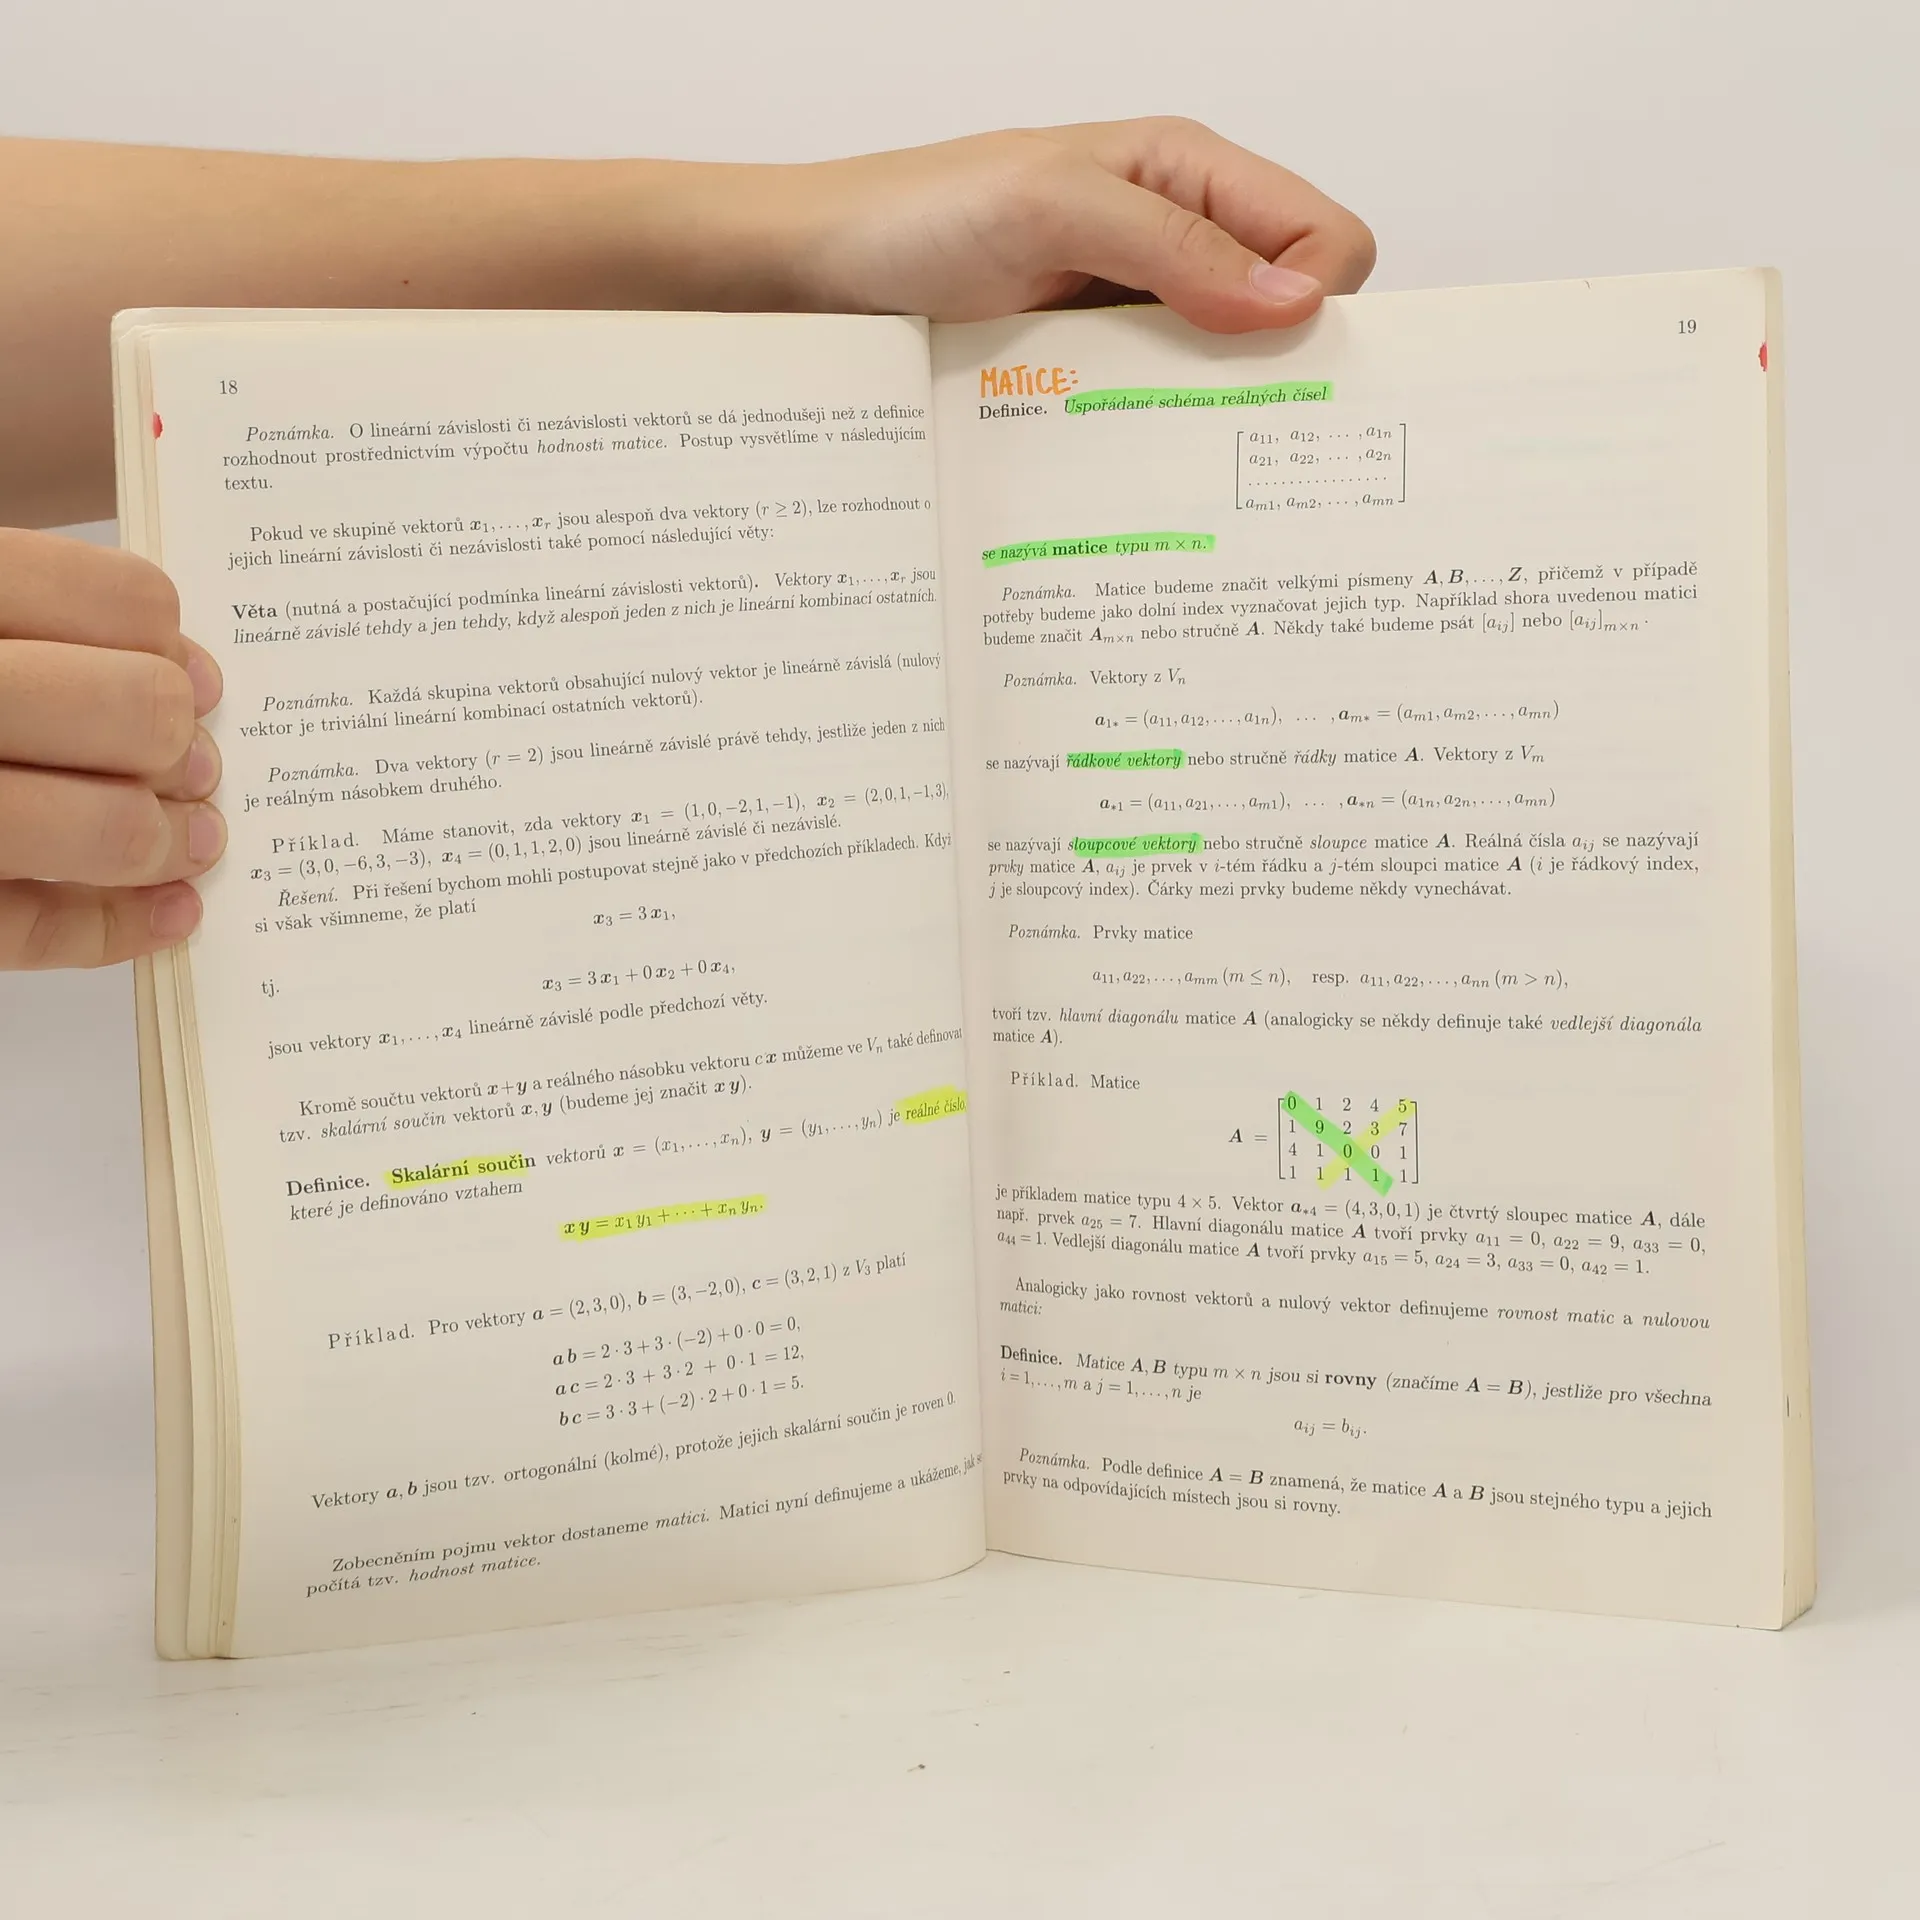 18
Poznámka. O lineární závislosti či nezávislosti vektorů se dá jednodušeji než z definice
rozhodnout prostřednictvím výpočtu hodnosti matice. Postup vysvětlíme v následujícím
textu.
Pokud ve skupině vektorů x₁, . . . , xᵣ jsou alespoň dva vektory (r ≥ 2), lze rozhodnout o
jejich lineární závislosti či nezávislosti také pomocí následující věty:
Věta (nutná a postačující podmínka lineární závislosti vektorů). Vektory x₁, . . . , xᵣ jsou
lineárně závislé tehdy a jen tehdy, když alespoň jeden z nich je lineární kombinací ostatních.
Poznámka. Každá skupina vektorů obsahující nulový vektor je lineárně závislá (nulový
vektor je triviální lineární kombinací ostatních vektorů).
Poznámka. Dva vektory (r = 2) jsou lineárně závislé právě tehdy, jestliže jeden z nich
je reálným násobkem druhého.
Příklad. Máme stanovit, zda vektory x₁ = (1, 0, −2, 1, −1), x₂ = (2, 0, 1, −1, 3),
x₃ = (3, 0, −6, 3, −3), x₄ = (0, 1, 1, 2, 0) jsou lineárně závislé či nezávislé.
Řešení. Při řešení bychom mohli postupovat stejně jako v předchozích příkladech. Když
si však všimneme, že platí
x₃ = 3 x₁,
tj.
x₃ = 3 x₁ + 0 x₂ + 0 x₄,
jsou vektory x₁, . . . , x₄ lineárně závislé podle předchozí věty.
Kromě součtu vektorů x + y a reálného násobku vektoru c x můžeme ve Vₙ také definovat
tzv. skalární součin vektorů x, y (budeme jej značit x y).
Definice. Skalární součin vektorů x = (x₁, . . . , xₙ), y = (y₁, . . . , yₙ) je reálné číslo,
které je definováno vztahem
x y = x₁ y₁ + · · · + xₙ yₙ.
Příklad. Pro vektory a = (2, 3, 0), b = (3, −2, 0), c = (3, 2, 1) z V₃ platí
a b = 2 · 3 + 3 · (−2) + 0 · 0 = 0,
a c = 2 · 3 + 3 · 2 + 0 · 1 = 12,
b c = 3 · 3 + (−2) · 2 + 0 · 1 = 5.
Vektory a, b jsou tzv. ortogonální (kolmé), protože jejich skalární součin je roven 0.
Zobecněním pojmu vektor dostaneme matici. Matici nyní definujeme a ukážeme, jak se
počítá tzv. hodnost matice.
19
MATICE:
Definice. Uspořádané schéma reálných čísel
a₁₁, a₁₂, . . . , a₁ₙ
a₂₁, a₂₂, . . . , a₂ₙ
. . . . . . . . . . . . . . . . .
aₘ₁, aₘ₂, . . . , aₘₙ
se nazývá matice typu m × n.
Poznámka. Matice budeme značit velkými písmeny A, B, . . . , Z, přičemž v případě
potřeby budeme jako dolní index vyznačovat jejich typ. Například shora uvedenou matici
budeme značit Aₘₓₙ nebo stručně A. Někdy také budeme psát [aᵢⱼ] nebo [aᵢⱼ]ₘₓₙ .
Poznámka. Vektory z Vₙ
a₁* = (a₁₁, a₁₂, . . . , a₁ₙ), . . . , aₘ* = (aₘ₁, aₘ₂, . . . , aₘₙ)
se nazývají řádkové vektory nebo stručně řádky matice A. Vektory z Vₘ
a*₁ = (a₁₁, a₂₁, . . . , aₘ₁), . . . , a*ₙ = (a₁ₙ, a₂ₙ, . . . , aₘₙ)
se nazývají sloupcové vektory nebo stručně sloupce matice A. Reálná čísla aᵢⱼ se nazývají
prvky matice A, aᵢⱼ je prvek v i-tém řádku a j-tém sloupci matice A (i je řádkový index,
j je sloupcový index). Čárky mezi prvky budeme někdy vynechávat.
Poznámka. Prvky matice
a₁₁, a₂₂, . . . , aₘₘ (m ≤ n), resp. a₁₁, a₂₂, . . . , aₙₙ (m > n),
tvoří tzv. hlavní diagonálu matice A (analogicky se někdy definuje také vedlejší diagonála
matice A).
Příklad. Matice
0 1 2 4 5
A = 1 9 2 3 7
4 1 0 0 1
1 1 1 1 1
je příkladem matice typu 4 × 5. Vektor a*₄ = (4, 3, 0, 1) je čtvrtý sloupec matice A, dále
např. prvek a₂₅ = 7. Hlavní diagonálu matice A tvoří prvky a₁₁ = 0, a₂₂ = 9, a₃₃ = 0,
a₄₄ = 1. Vedlejší diagonálu matice A tvoří prvky a₁₅ = 5, a₂₄ = 3, a₃₃ = 0, a₄₂ = 1.
Analogicky jako rovnost vektorů a nulový vektor definujeme rovnost matic a nulovou
matici:
Definice. Matice A, B typu m × n jsou si rovny (značíme A = B), jestliže pro všechna
i = 1, . . . , m a j = 1, . . . , n je
aᵢⱼ = bᵢⱼ.
Poznámka. Podle definice A = B znamená, že matice A a B jsou stejného typu a jejich
prvky na odpovídajících místech jsou si rovny.